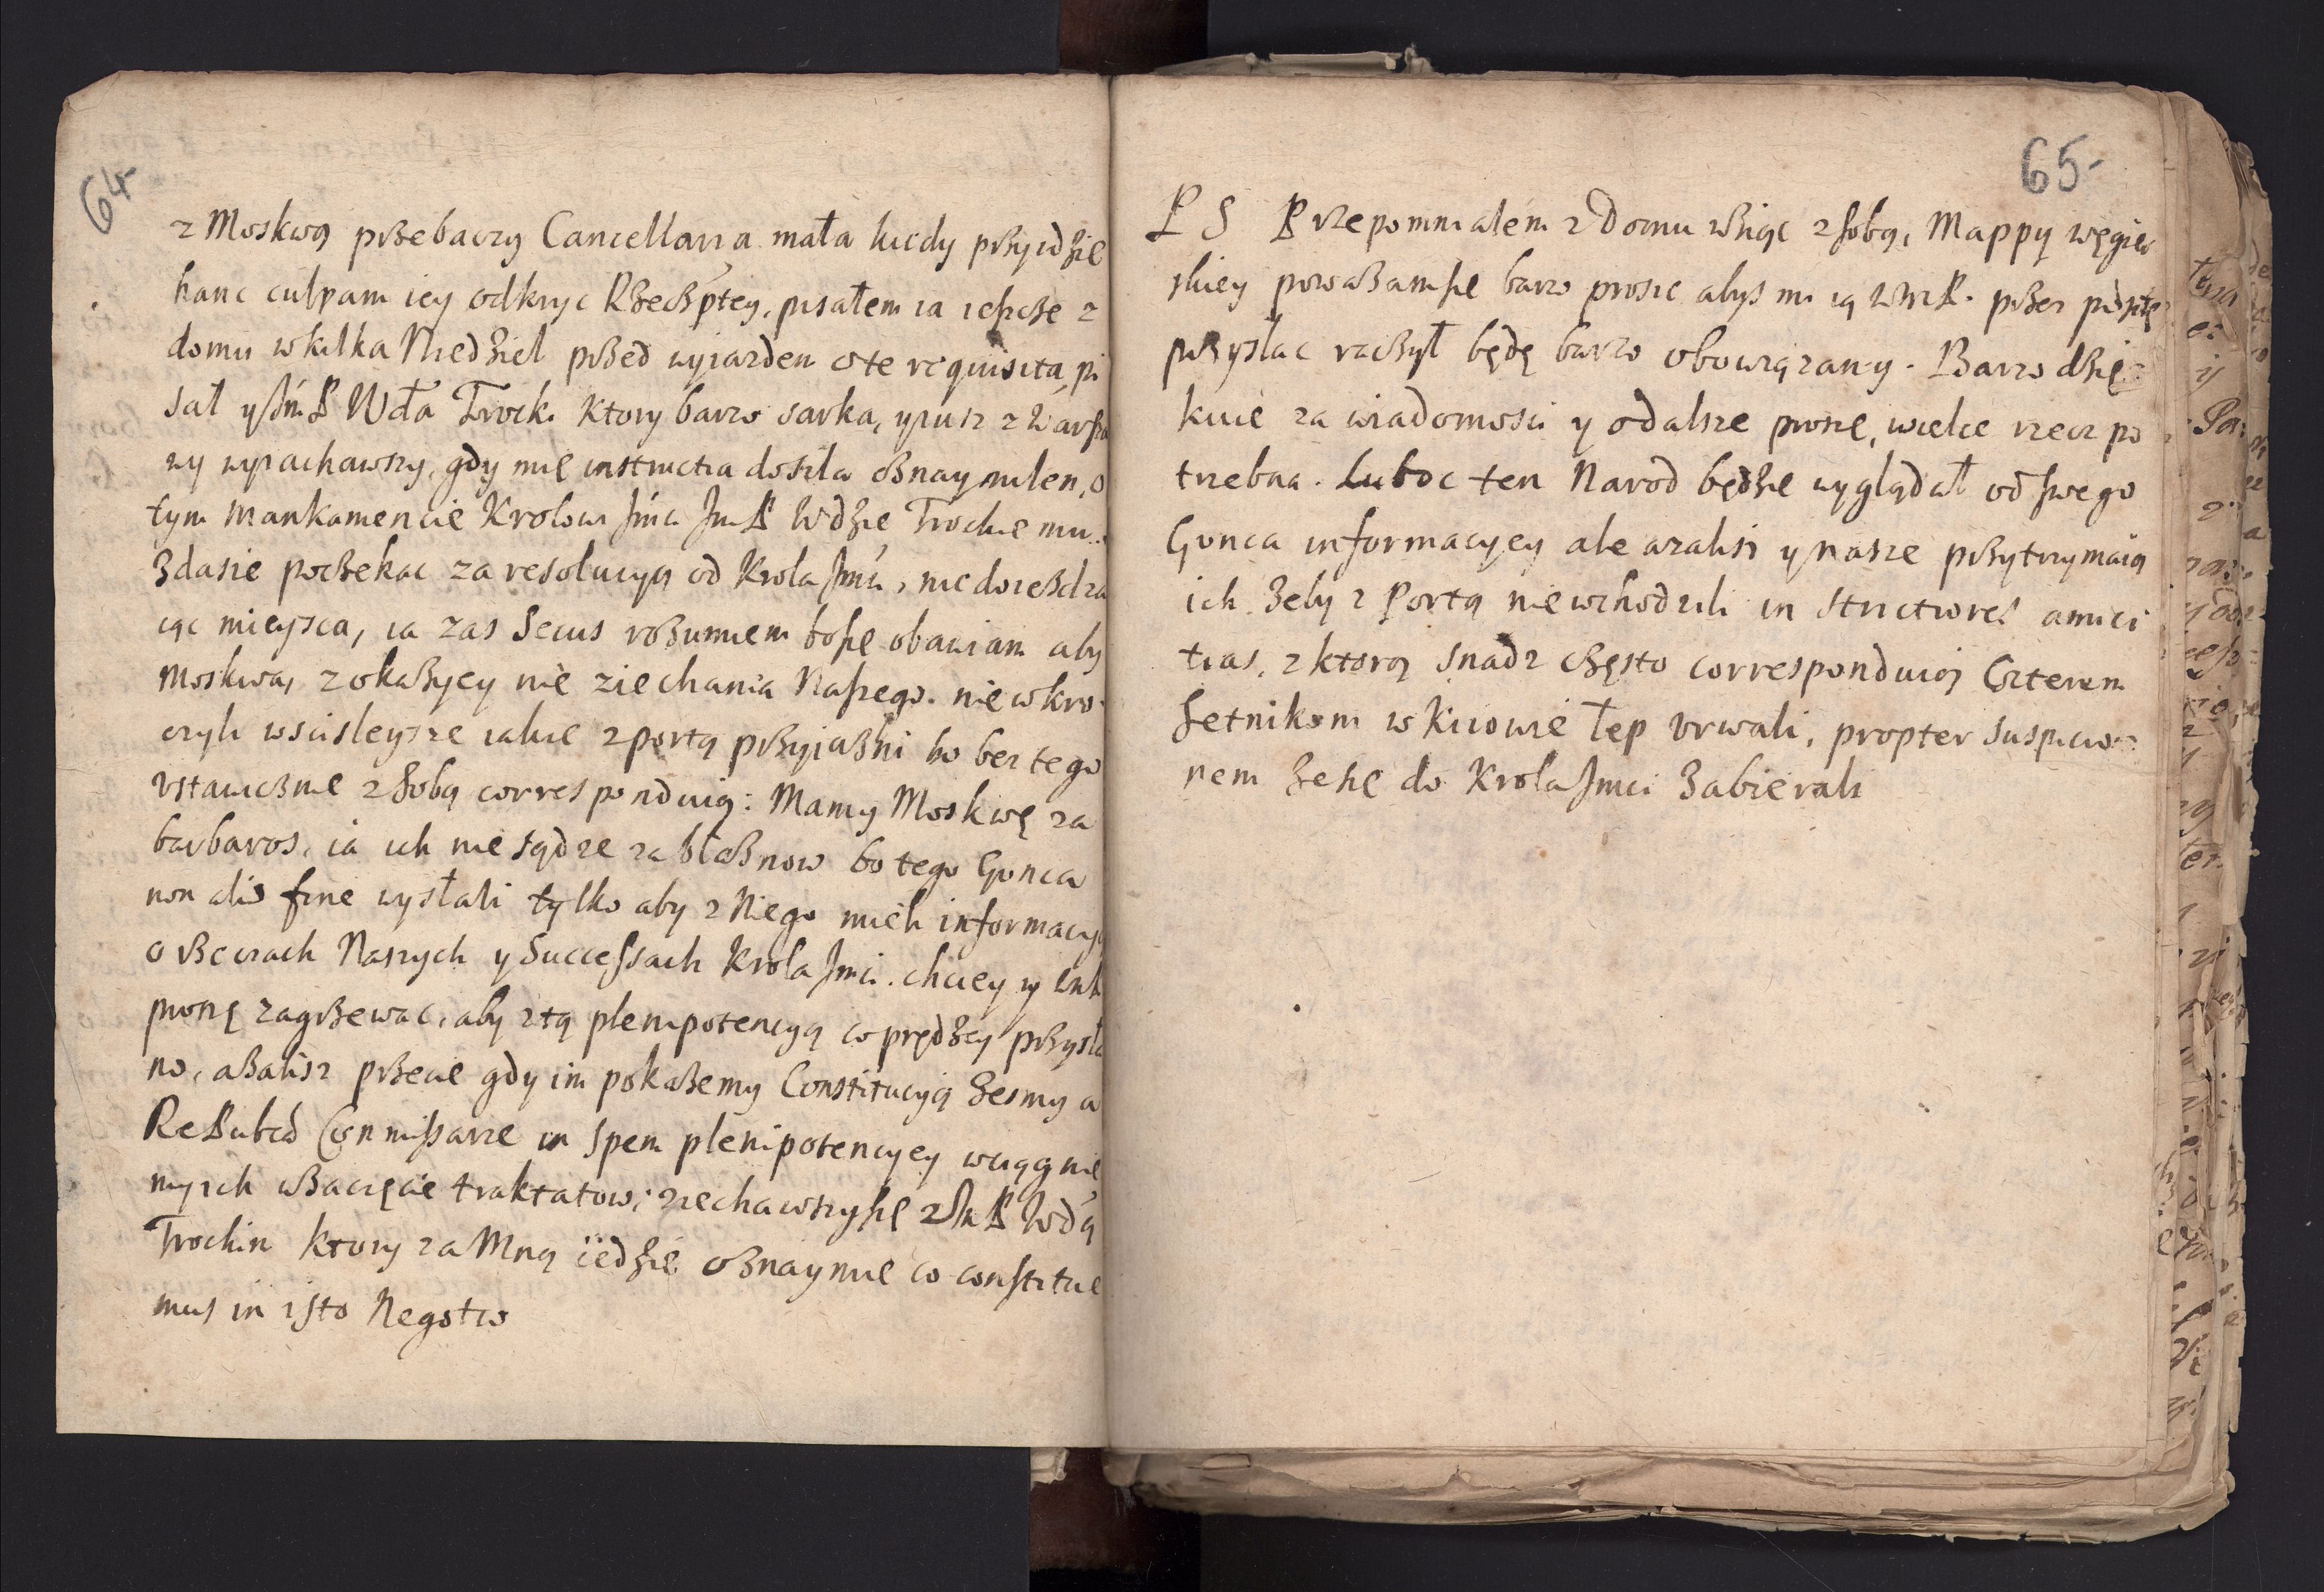 64
z Moskwą przebaczy Cancellaria mała kiedy przyidzie
hanc culpam iey odkryc Rzeczptey, pisałem ia ieszcze z
domu w kilka Niedziel przed wyiazdem o te requisita, pi
sał y Jm P Wda Trocki ktory barzo sarka, y iusz z Warsza
wy wyiachawszy, gdy mię instructia doszla oznaymilem, o
tym mankamencie Krolowi Jmci Jm P Wdzie Trockiemu
zdasie poczekac za resolucyą od Krola Jmci, nie doiezdza
iąc mieysca, ia zas Secus rozumiem bo się obawiam aby
Moskwa, z okazycy nie ziechania Naszego. nie wkro
czyli w scisleysze iakie z portą przyiazni bo bez tego
vstawicznie z sobą correspondują: Mamy Moskwę za
barbaros, ia ich nie sądze za błaznow bo tego Gonca
non alio fine wysłali tylko aby z Niego mieli informacyą
o rzeczach Naszych y Successach Krola Jmci. chciey
proszę zagrzewac, aby z tą plenipotencyą co prędzey przysła
no, azalisz przecie gdy im pokażemy Constitucyią żesmy a
RePubca Commissarze in Spem plenipotencyey wciągnie
my ich w zaczęcie traktatow; ziechawszy się z Jm P Wdą
Trockim ktory za Mną iedzie oznaymie co constitue
mus in isto Negotio
65
P S Przepomnialem z Domu wziąc z sobą, Mappy węgier
skiey powazam się barzo prosic abys mi ią WMP. przez pocztę
przysłac raczył będę barzo obowiązany. Barzo dzię
kuie za wiadomosci y o dalsze prosze, wielce rzecz po
trzebna. Luboc ten Narod będzie wyglądał od swego
Gonca informacyey ale azalisz y nasze przytrzymaią
ich żeby z Portą nie wchodzili in strictiores amici
tias, z ktorą snadz często correspondują Czterem
Setnikom w Kiiowie łep vrwali, propter suspicio
nem że się do Krola Jmci zabierali